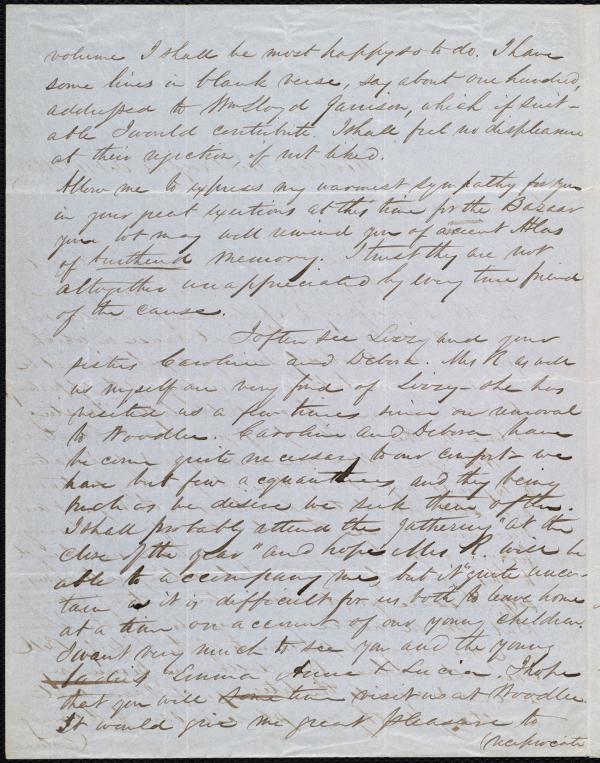 volume I shall be most happy so to do. I have
some lines in blank verse, say about one hundred,
addressed to Wm Lloyd Garrison, which if suit-
able I would contribute. I shall feel no displeasure
at their rejection, if not liked.
Allow me to express my warmest sympathy for you
in your great exertions at this time for the Bazaar
your lot may well remind you of ancient Atlas
of burthened memory. I trust they are not
altogether unappreciated by every true friend
of the cause.
I often see Lizzy and your
sisters Caroline and Debora. Mrs R. as well
as myself are very fond of Lizzy she has
visited us a few times since our removal
to Woodlee. Caroline and Debora have
become quite necessary to our comfort - we
have but few acquaintances, and they being
such as we desire we seek them often.
I shall probably attend the gathering "at the
close of the year" and hope Mrs R. will be
able to accompany me, but it "quite uncer-
tain as it is difficult for us both to leave home
at a time on account of our young children.
I want very much to see you and the young
ladies Emma Anne & Lucia. I hope
that you will some time visit us at Woodlee.
It would give me great pleasure to
reciprocate